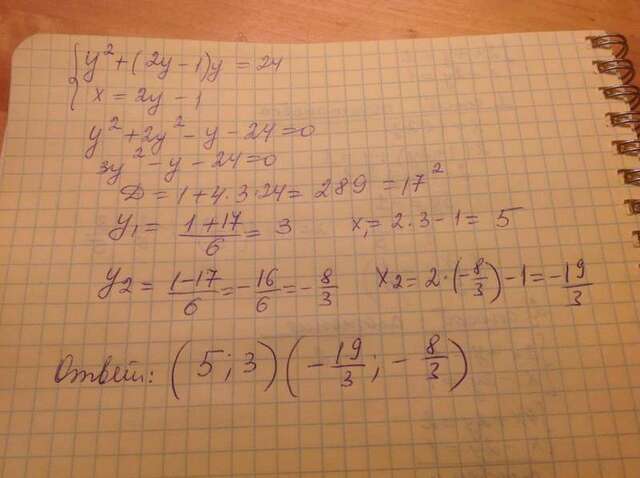 { y² + (2y - 1)y = 24
x = 2y - 1
y² + 2y² - y - 24 = 0
3y² - y - 24 = 0
D = 1 + 4·3·24 = 289 = 17²
y₁ = (1+17)/6 = 3 x₁ = 2·3 - 1 = 5
y₂ = (1-17)/6 = -16/6 = -8/3 x₂ = 2·(-8/3) - 1 = -19/3
Ответ: (5; 3) (-19/3; -8/3)